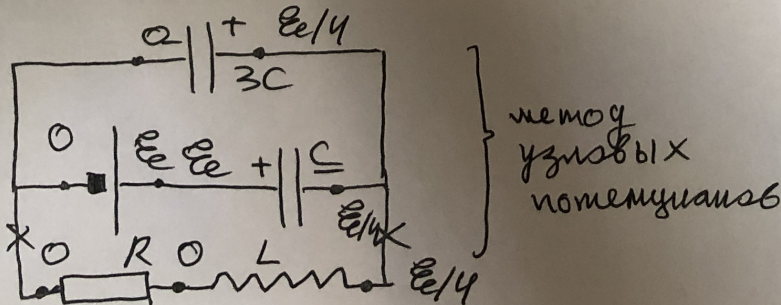 0 + ℰ/4
3C
0 ℰ ℰ + C
ℰ/4
0 R 0 L ℰ/4
метод
узловых
потенциалов